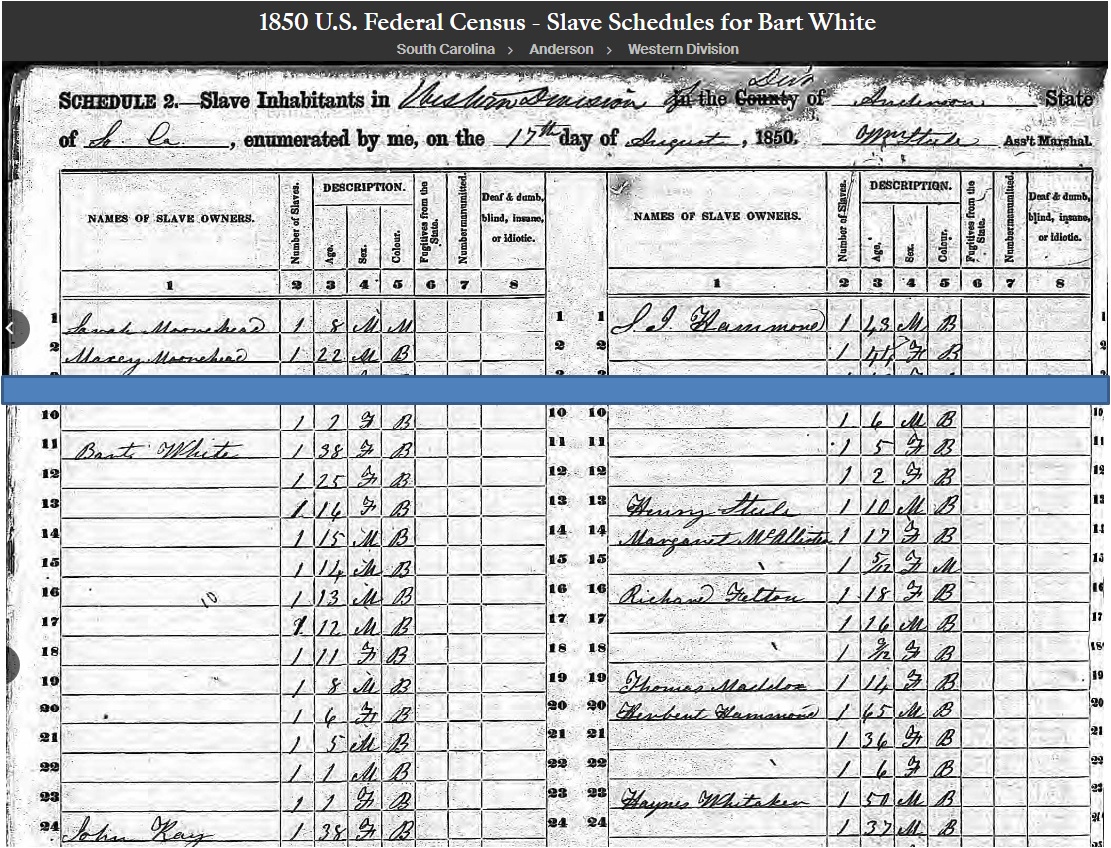 1850 U.S. Federal Census - Slave Schedules for Bart White
South Carolina > Anderson > Western Division
SCHEDULE 2.—Slave Inhabitants in Western Division in the County Div of Anderson State
of So Ca , enumerated by me, on the 17th day of August , 1850. Ass't Marshal.
NAMES OF SLAVE OWNERS. Number of Slaves. DESCRIPTION. Age. Sex. Colour. Fugitives from the State. Number manumitted. Deaf & dumb, blind, insane, or idiotic.
NAMES OF SLAVE OWNERS. Number of Slaves. DESCRIPTION. Age. Sex. Colour. Fugitives from the State. Number manumitted. Deaf & dumb, blind, insane, or idiotic.
1 2 3 4 5 6 7 8 1 2 3 4 5 6 7 8
1 Sarah Moorehead 1 8 M M 1 1 Hammond 1 43 M B 1
2 Maxey Moorehead 1 22 M B 2 2 1 F B 2
10 1 2 F B 10 10 1 6 M B 10
11 Bart White 1 38 F B 11 11 1 5 F B 11
12 1 25 F B 12 12 1 2 F B 12
13 1 16 F B 13 13 Henry Steele 1 10 M B 13
14 1 15 M B 14 14 Margaret McAllister 1 17 F B 14
15 1 14 M B 15 15 1 5/12 F M 15
16 10 1 13 M B 16 16 Richard Felton 1 18 F B 16
17 1 12 M B 17 17 1 16 M B 17
18 1 11 F B 18 18 1 F B 18
19 1 8 M B 19 19 Thomas Maddox 1 14 F B 19
20 1 6 F B 20 20 Herbert Hammond 1 65 M B 20
21 1 5 M B 21 21 1 36 F B 21
22 1 1 M B 22 22 1 6 F B 22
23 1 1 F B 23 23 Haynes Whitaker 1 50 M B 23
24 John Kay 1 38 F B 24 24 1 37 M B